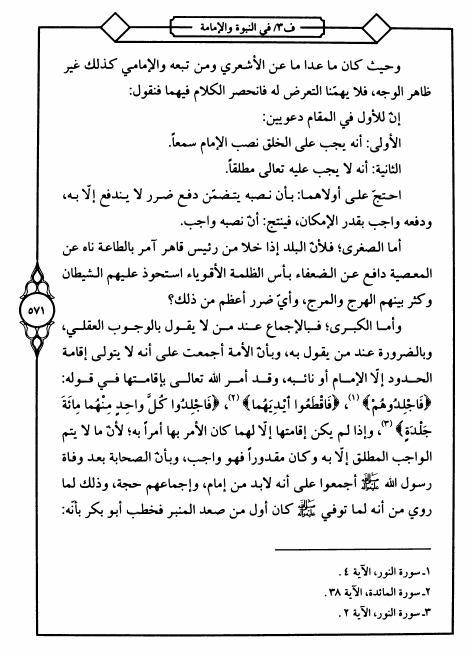 ف٣/ في النبوة والإمامة
وحيث كان ما عدا ما عن الأشعري ومن تبعه والإمامي كذلك غير
ظاهر الوجه، فلا يهمّنا التعرض له فانحصر الكلام فيهما فنقول:
إنّ للأول في المقام دعويين:
الأولى: أنه يجب على الخلق نصب الإمام سمعاً.
الثانية: أنه لا يجب عليه تعالى مطلقاً.
احتجّ على أولاهما: بأن نصبه يتضمّن دفع ضرر لا يندفع إلّا به،
ودفعه واجب بقدر الإمكان، فينتج: أنّ نصبه واجب.
أما الصغرى؛ فلأنّ البلد إذا خلا من رئيس قاهر آمر بالطاعة ناه عن
المعصية دافع عن الضعفاء بأس الظلمة الأقوياء استحوذ عليهم الشيطان
وكثر بينهم الهرج والمرج، وأيّ ضرر أعظم من ذلك؟
وأما الكبرى؛ فبالإجماع عند من لا يقول بالوجوب العقلي،
وبالضرورة عند من يقول به، وبأنّ الأمة أجمعت على أنه لا يتولى إقامة
الحدود إلّا الإمام أو نائبه، وقد أمر الله تعالى بإقامتها في قوله:
﴿فَاجْلِدُوهُمْ﴾(١)، ﴿فَاقْطَعُوا أَيْدِيَهُما﴾(٢)، ﴿فَاجْلِدُوا كُلَّ واحِدٍ مِنْهُما مِائَةَ
جَلْدَةٍ﴾(٣)، وإذا لم يكن إقامتها إلّا لهما كان الأمر بها أمراً به؛ لأنّ ما لا يتم
الواجب المطلق إلّا به وكان مقدوراً فهو واجب، وبأن الصحابة بعد وفاة
رسول الله ﷺ أجمعوا على أنه لابد من إمام، وإجماعهم حجة، وذلك لما
روي من أنه لما توفي ﷺ كان أول من صعد المنبر فخطب أبو بكر بأنّه:
٥٧١
١ـ سورة النور، الآية ٤.
٢ـ سورة المائدة، الآية ٣٨.
٣ـ سورة النور، الآية ٢.